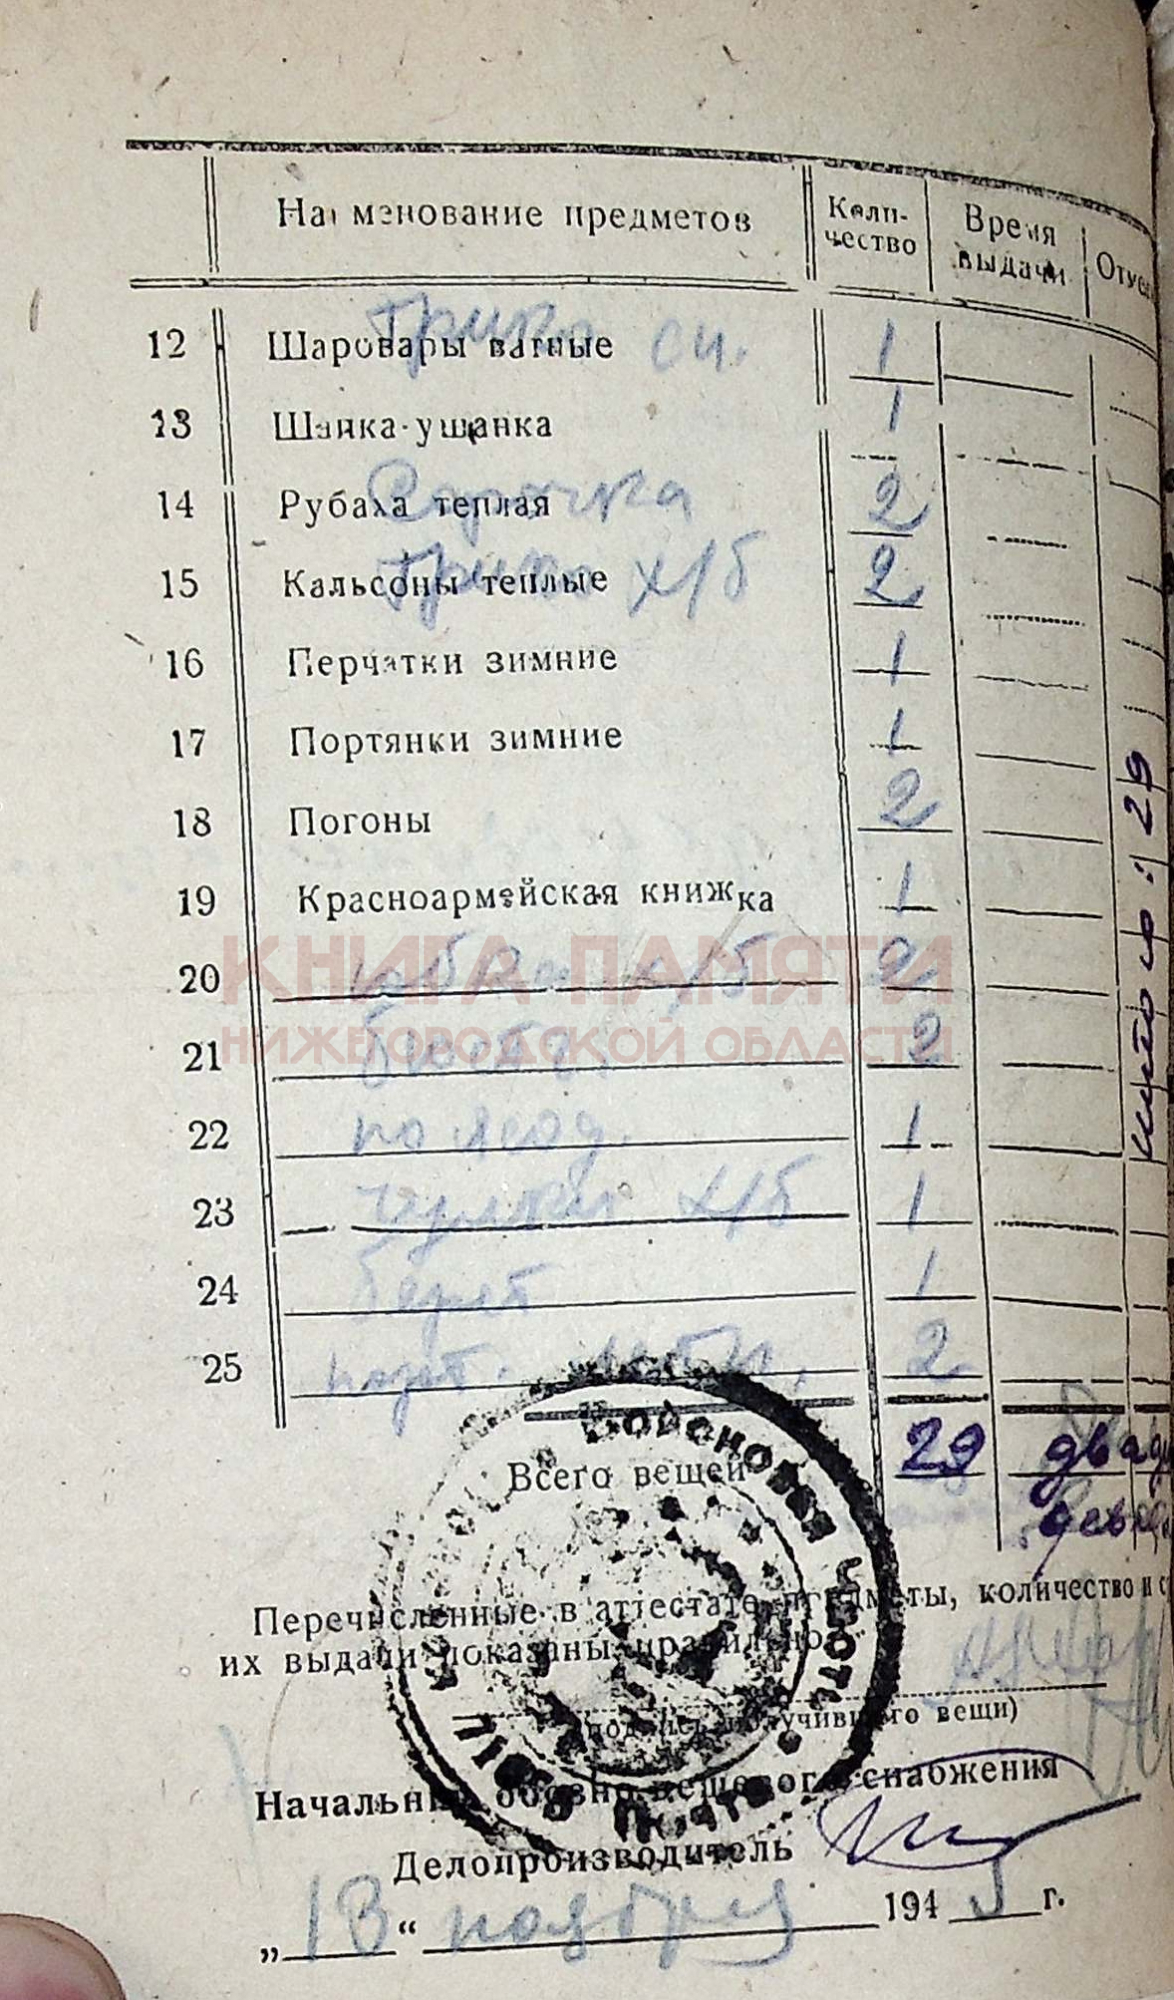 Наименование предметов Количество Время выдачи
12 Шаровары ватные Трико 1
13 Шапка-ушанка 1
14 Рубаха теплая Сорочка 2
15 Кальсоны теплые Трико х/б 2
16 Перчатки зимние 1
17 Портянки зимние 1
18 Погоны 2
19 Красноармейская книжка 1
20 х/б 2
КНИГА ПАМЯТИ
21 2
НИЖЕГОРОДСКОЙ ОБЛАСТИ
22 1
23 чулки х/б 1
24 берет 1
25 2
Всего вещей 29
Итого: 29
Перечисленные в аттестате предметы, количество и
их выдачи показаны правильно
(подпись получившего вещи)
Начальник обозно-вещевого снабжения
Делопроизводитель
„13“ ноября 1945 г.
Войсковая часть
Полевая Почта